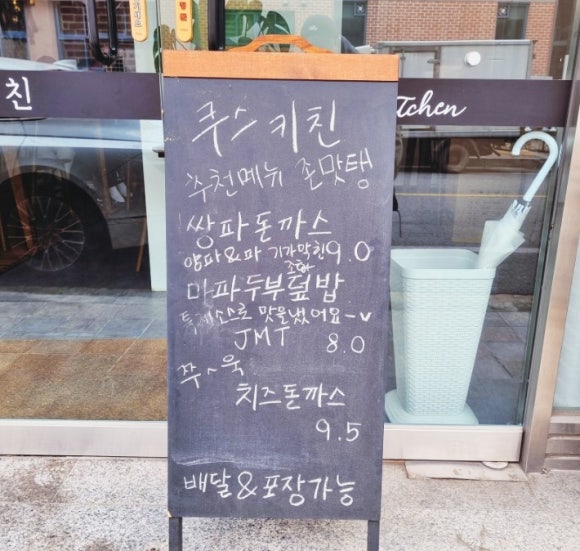 쿠스키친
추천메뉴 존맛탱
쌍파돈까스
양파&파 기가막힌 9.0
조화
마파두부덮밥
특제소스로 맛을냈어요~v
JMT 8.0
쭈~욱
치즈돈까스
9.5
배달&포장가능
친
Tchen